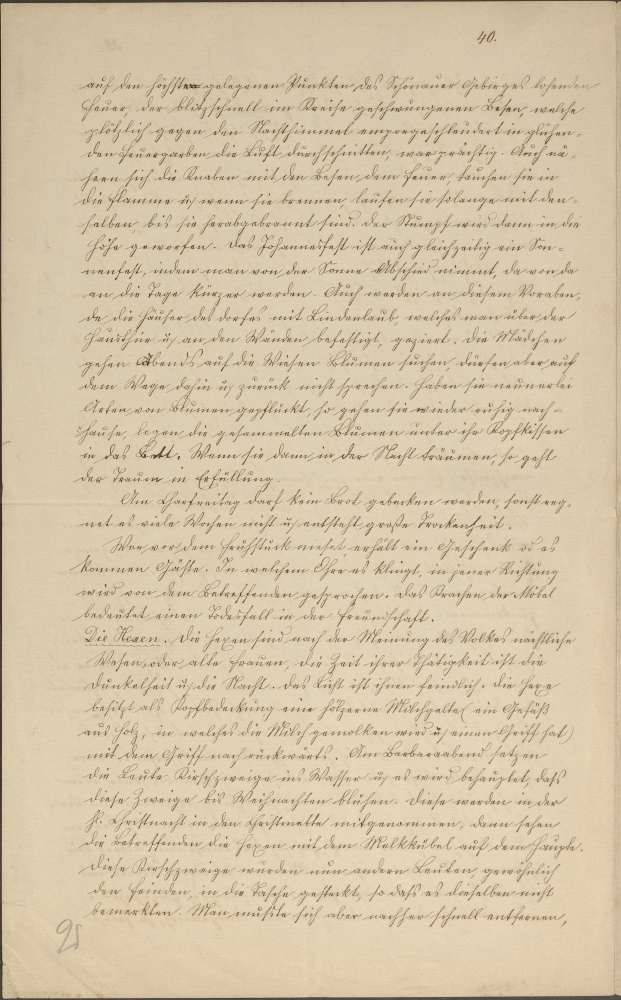 40.
auf den höchsten gelegenen Punkten des Schönauer Gebirges lohenden
Feuer der blitzschnell im Kreise geschwungenen Besen, welche
plötzlich gegen den Nachthimmel emporgeschleudert in glühen-
den Feuergarben die Luft durchschnitten, war prächtig. Auch nä-
hern sich die Knaben mit den Besen, dem Feuer, tauchen sie in
die Flamme u. wenn sie brennen, laufen sie solange mit den-
selben bis sie herabgebrannt sind. Der Stumpf wird dann in die
Höhe geworfen. Das Johannesfest ist auch gleichzeitig ein Son-
nenfest, indem man von der Sonne Abschied nimmt, da von da
an die Tage kürzer werden. Auch werden an diesem Voraben,
da die Häuser des Dorfes mit Lindenlaub, welches man über der
Hausthür u. an den Wänden befestigt, geziert. Die Mädchen
gehen Abends auf die Wiesen Blumen suchen, dürfen aber auf
dem Wege dahin u. zurück nicht sprechen. Haben sie neunerlei
Arten von Blumen gepflückt, so gehen sie wieder ruhig nach-
hause, legen die gesammelten Blumen unter ihr Kopfkissen
in das Bett. Wenn sie dann in der Nacht träumen, so geht
der Traum in Erfüllung.
Am Charfreitag darf kein Brot gebacken werden, sonst reg-
net es viele Wochen nicht u. entsteht große Trockenheit.
Wer vor dem Frühstück nieset, erhält ein Geschenk od es
kommen Gäste. In welchem Ohre es klingt, in jener Richtung
wird von dem Betreffenden gesprochen. Das Krachen der Möbel
bedeutet einen Todesfall in der Freundschaft.
Die Hexen. Die Hexen sind nach der Meinung des Volkes nächtliche
Wesen, oder alte Frauen, die Zeit ihrer Thätigkeit ist die
Dunkelheit u. die Nacht. Das Licht ist ihnen feindlich. Die Hexe
besitzt als Kopfbedeckung eine hölzerne Milchgelte (ein Gefäß
aus Holz, in welches die Milch gemolken wird u. einen Griff hat)
mit dem Griff nach rückwärts. Am Barbaraabend setzen
die Leute Kirschzweige ins Wasser u. es wird behauptet, daß
diese Zweige bis Weihnachten blühen. Diese werden in der
hl. Christnacht in den Christmette mitgenommen, dann sehen
die Betreffenden die Hexen mit dem Melkkübel auf dem Haupte.
Diese Kirschzweige wurden nun andern Leuten, gewöhnlich
den Feinden, in die Tasche gesteckt, so daß es dieselben nicht
bemerkten. Man mußte sich aber nachher schnell entfernen,